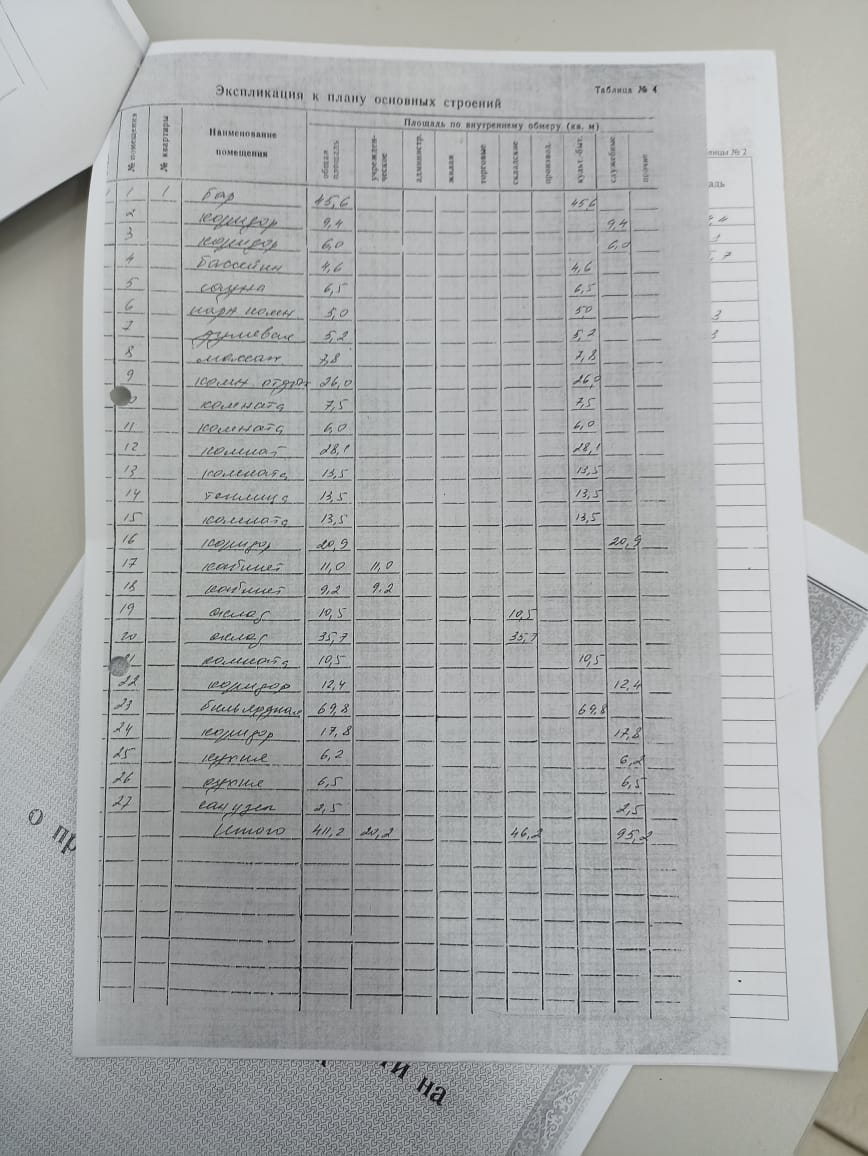 Экспликация к плану основных строений
Таблица № 4
№ помещения
№ квартиры
Наименование помещения
Площадь по внутреннему обмеру (кв. м)
общая площадь
учрежден-ческое
администр.
жилая
торговые
складские
производ.
культ.-быт.
служебные
прочие
1 1 бар 45,6 45,6
2 коридор 9,4 9,4
3 коридор 6,0 6,0
4 бассейн 4,6 4,6
5 сауна 6,5 6,5
6 парн комн 5,0 5,0
7 душевая 5,2 5,2
8 массаж 7,8 7,8
9 комн отдых 26,0 26,0
комната 7,5 7,5
11 комната 6,0 6,0
12 комнат 28,1 28,1
13 комната 13,5 13,5
14 теплица 13,5 13,5
15 комната 13,5 13,5
16 коридор 20,9 20,9
17 кабинет 11,0 11,0
18 кабинет 9,2 9,2
19 склад 10,5 10,5
20 склад 35,7 35,7
21 комната 10,5 10,5
22 коридор 12,4 12,4
23 бильярдная 69,8 69,8
24 коридор 17,8 17,8
25 кухня 6,2 6,2
26 кухня 6,5 6,5
27 сан узел 2,5 2,5
Итого 411,2 20,2 46,2 95,2
№ 2
о пр
ти на